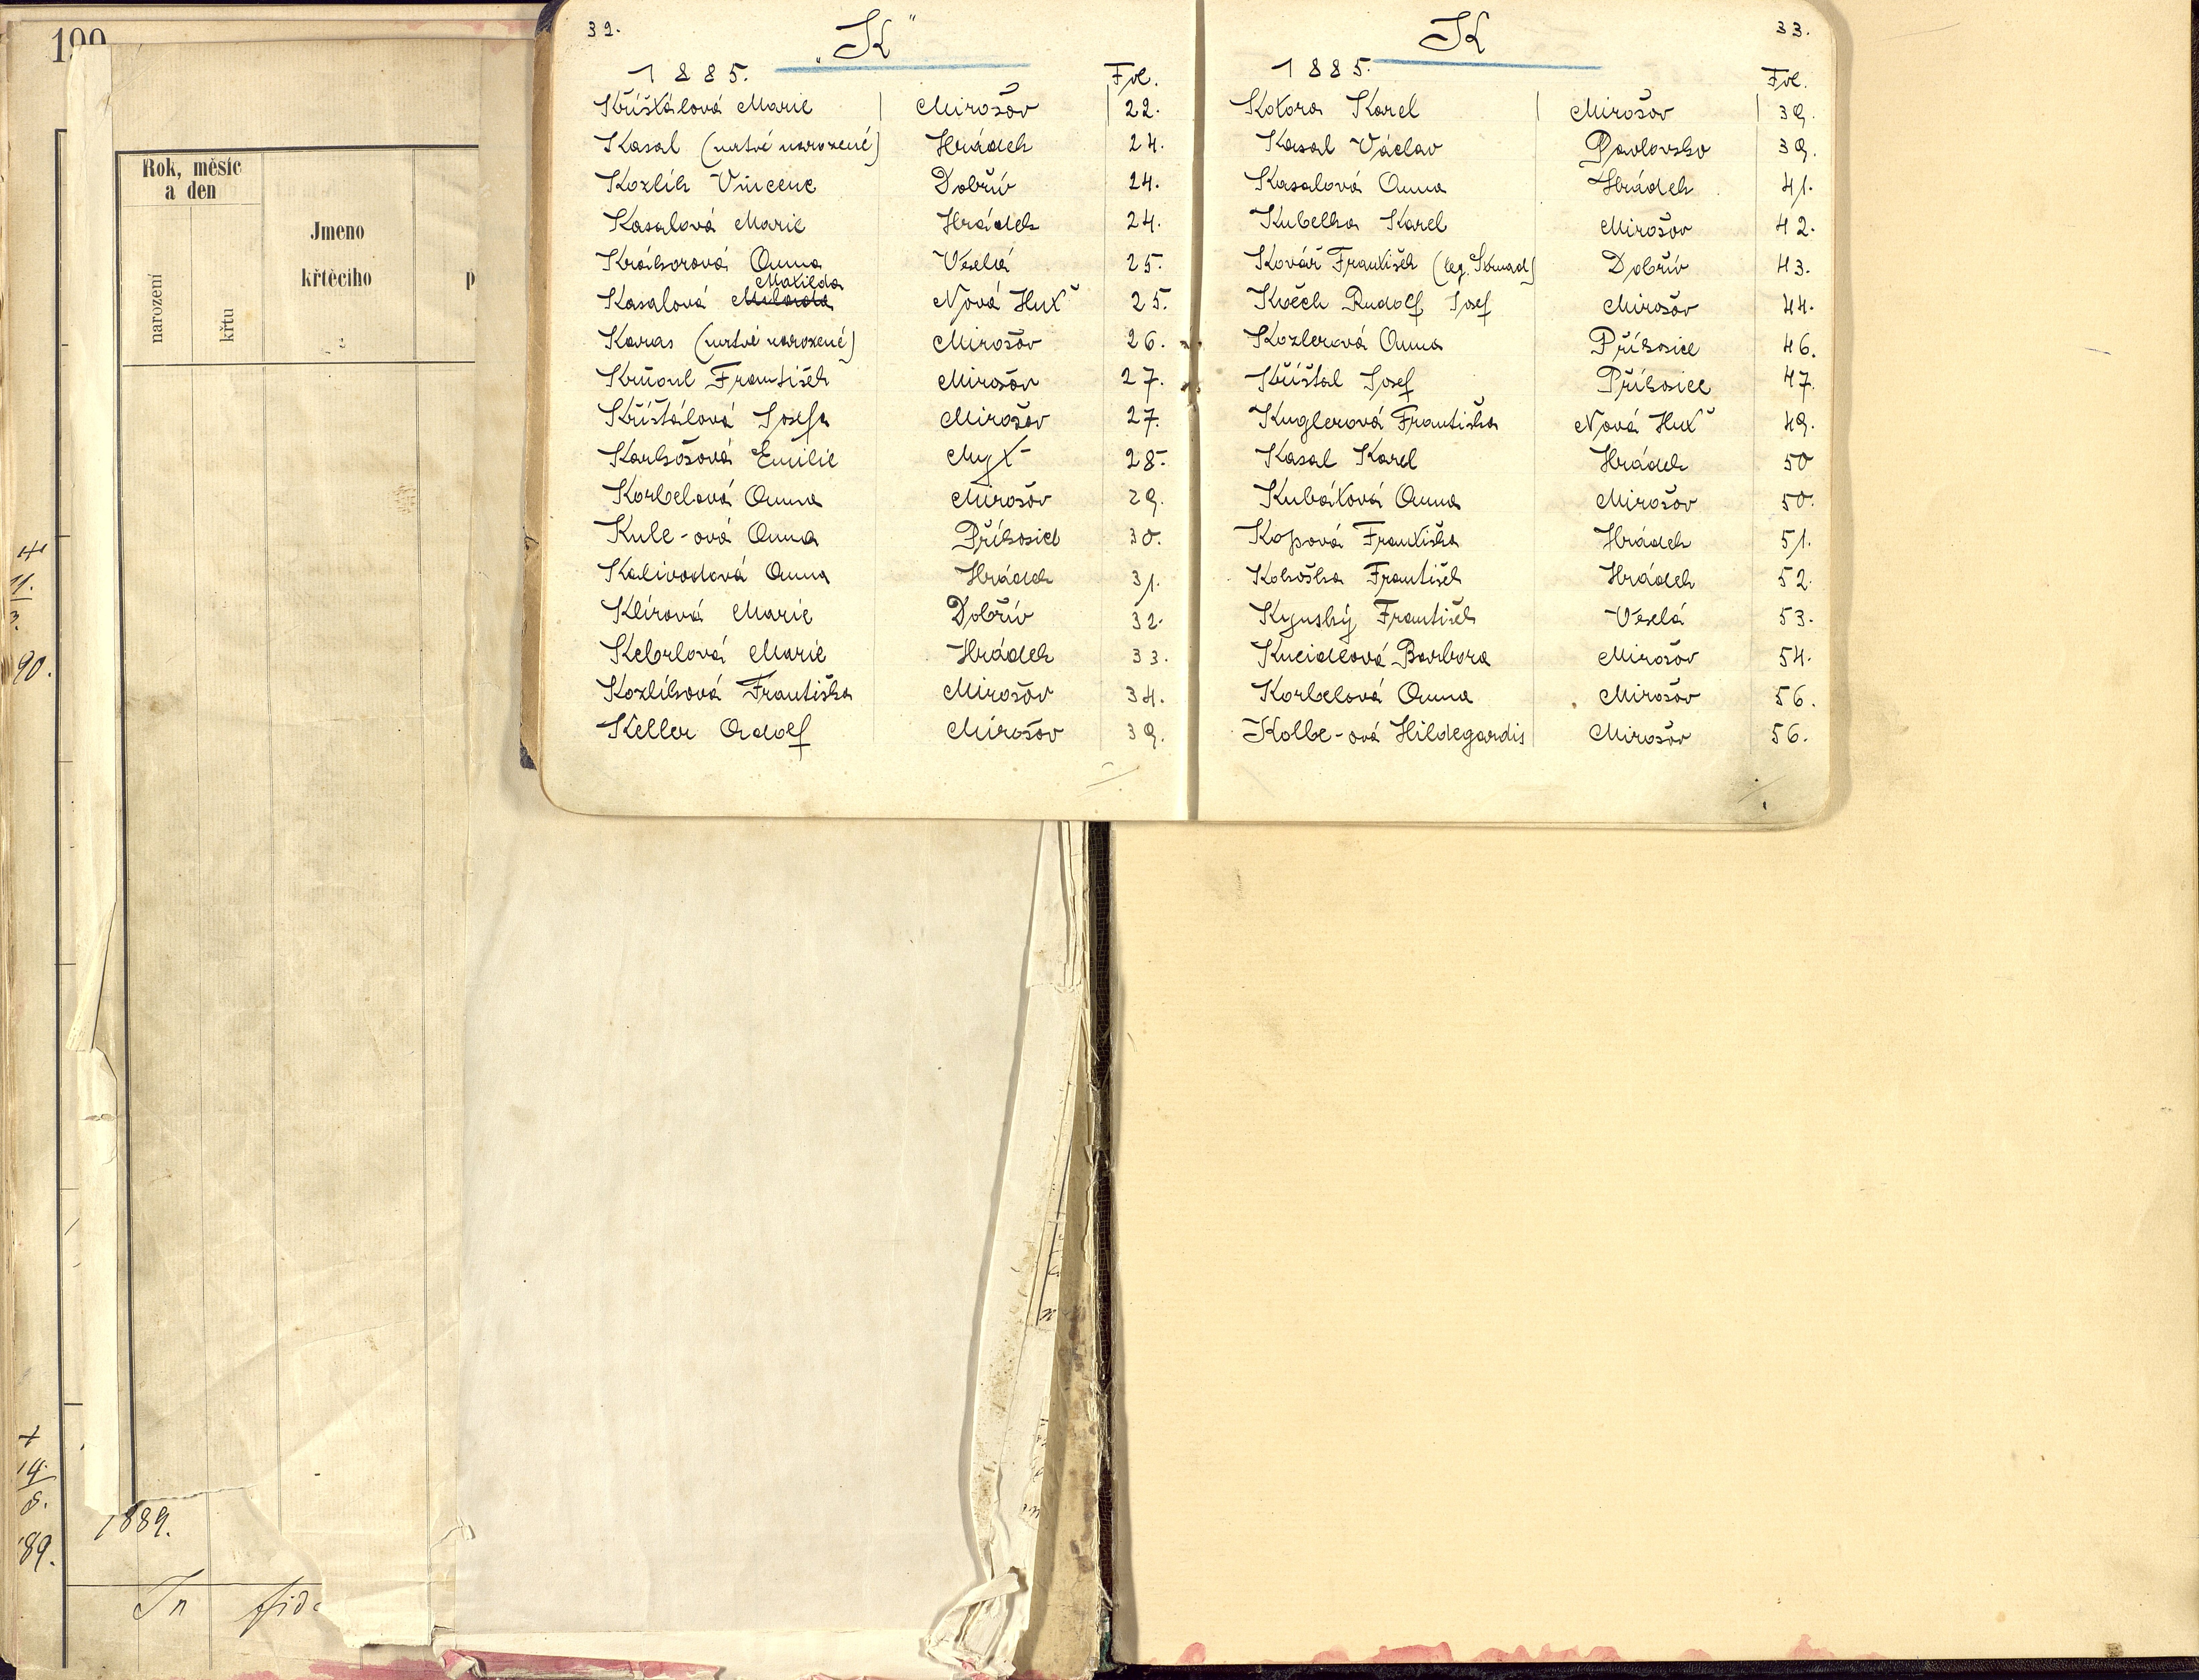 32.
„K"
1885.
Fol.
Křišťálová Marie Mirošov 22.
Kasal (mrtvě narozené) Hrádek 24.
Kozlík Vincenc Dobřív 24.
Kasalová Marie Hrádek 24.
Krákorová Anna Veselá 25.
Matilda
Kasalová Nová Huť 25.
Karas (mrtvě narozené) Mirošov 26.
František Mirošov 27.
Křišťálová Josefa Mirošov 27.
Karbošová Emilie Mýť 28.
Korbelová Anna Mirošov 29.
Kule-ová Anna Příkosice 30.
Kalivodová Anna Hrádek 31.
Klírová Marie Dobřív 32.
Kebrlová Marie Hrádek 33.
Kozlíková Františka Mirošov 34.
Keller Adolf Mirošov 39.
K
33.
1885.
Fol.
Kotora Karel Mirošov 39.
Kasal Václav Pavlovsko 39.
Kasalová Anna Hrádek 41.
Kubelka Karel Mirošov 42.
Kovář František (leg. Strnad) Dobřív 43.
Kvěch Rudolf Josef Mirošov 44.
Kozlerová Anna Příkosice 46.
Křišťal Josef Příkosice 47.
Kuglerová Františka Nová Huť 49.
Kasal Karel Hrádek 50
Kubátová Anna Mirošov 50.
Kopová Františka Hrádek 51.
Kokoška František Hrádek 52.
Kynský František Veselá 53.
Kneidlová Barbora Mirošov 54.
Korbelová Anna Mirošov 56.
Kolbe-ová Hildegardis Mirošov 56.
Rok, měsíc
a den
narození
křtu
Jmeno
křtěcího
90.
1889.
89.
In fid